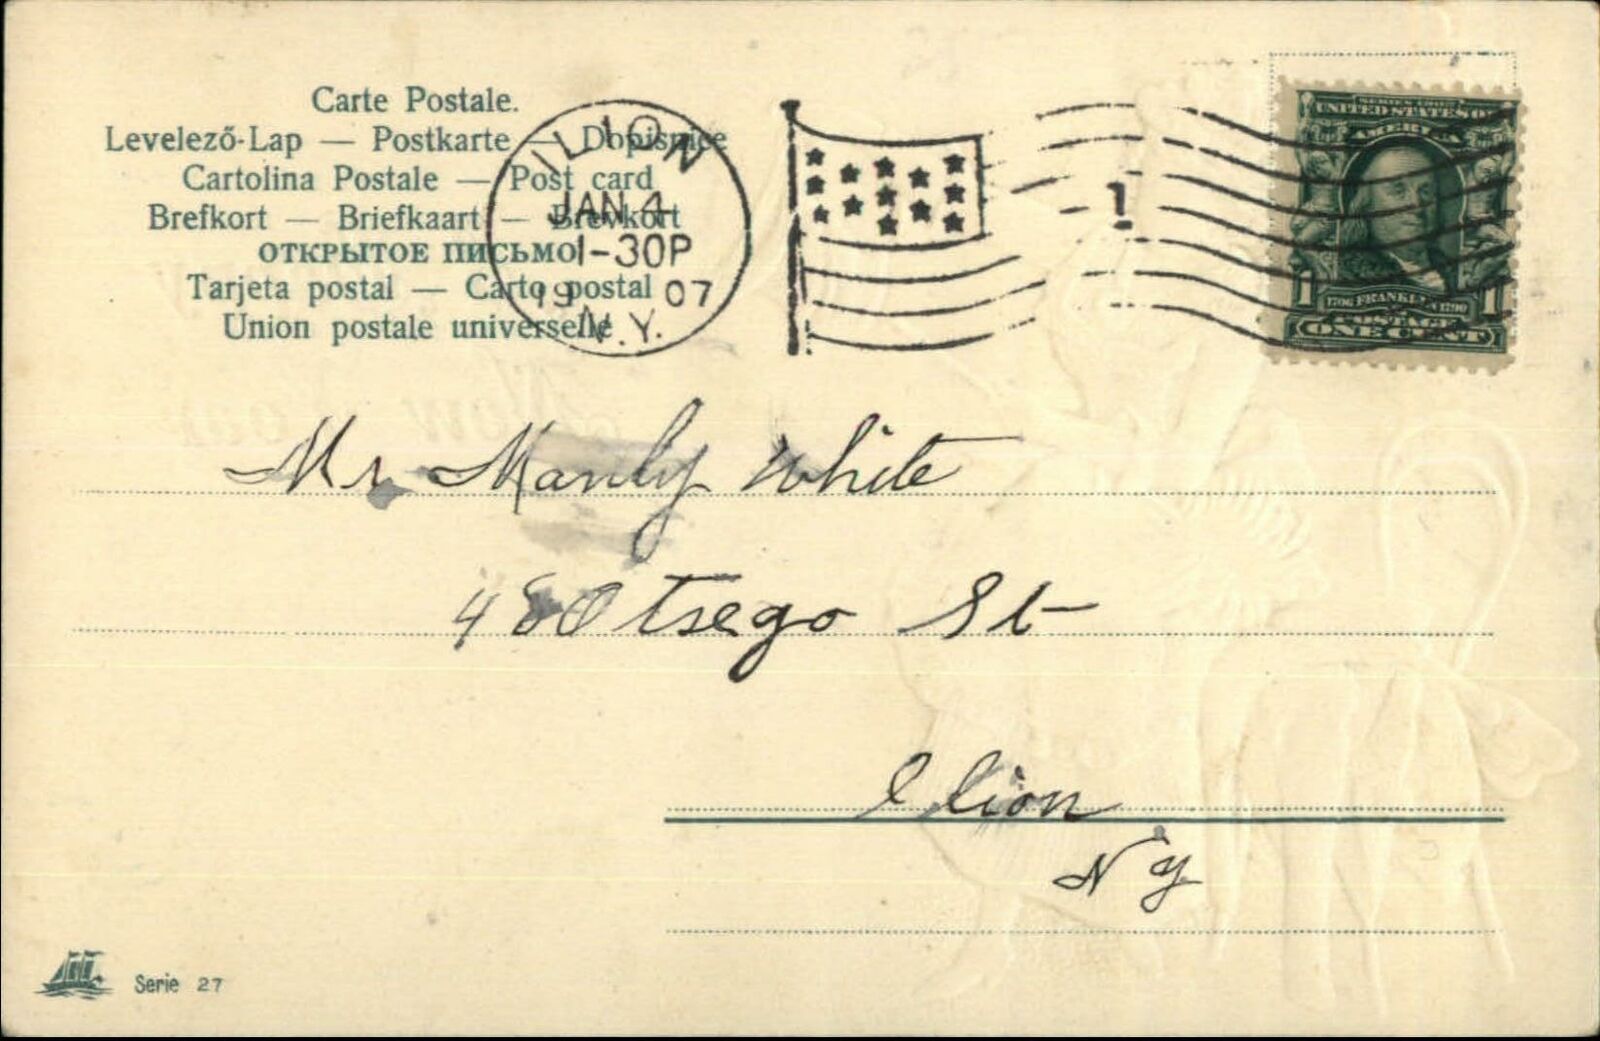 Carte Postale.
Levelező-Lap — Postkarte — Dopisnice
Cartolina Postale — Post card
Brefkort — Briefkaart — Brevkort
ОТКРЫТОЕ ПИСЬМО
Tarjeta postal — Carto postal
Union postale universelle
ILION
JAN 4
1-30P
1907
N.Y.
1
SERIES 1902
UNITED STATES OF
AMERICA
1 1706 FRANKLIN 1790 1
POSTAGE
ONE CENT
Mr Manly White
48 Otsego St
Ilion
N Y
Serie 27